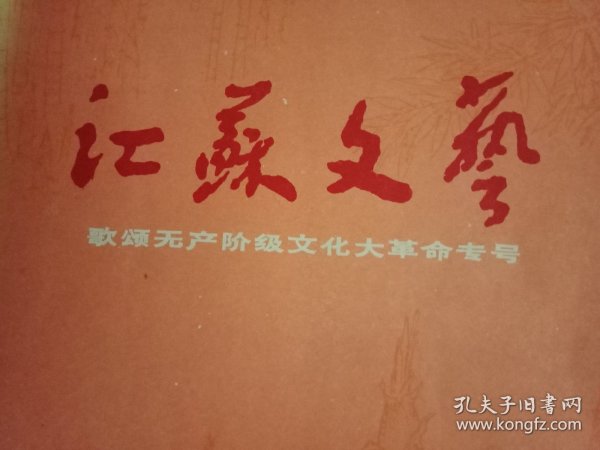 江蘇文藝
歌颂无产阶级文化大革命专号
孔夫子旧書网
www.kongfz.com